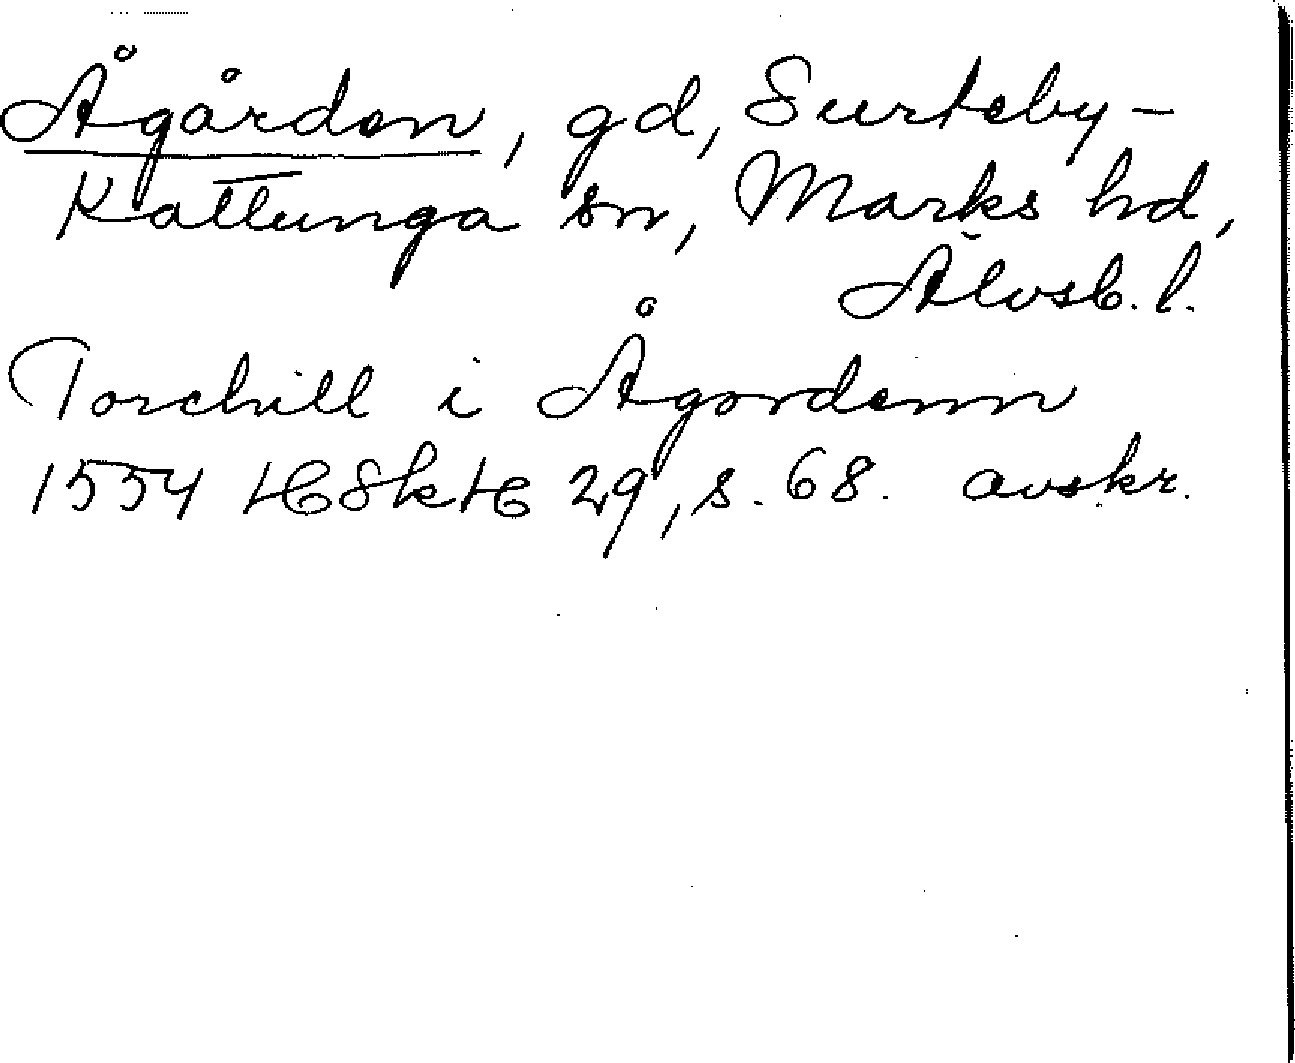 Ågården, gd, Surteby-
Kattunga sn, Marks hd,
Älvsb. l.
Torchill i Ågordenn
1554 HSkH 29, s. 68. avskr.